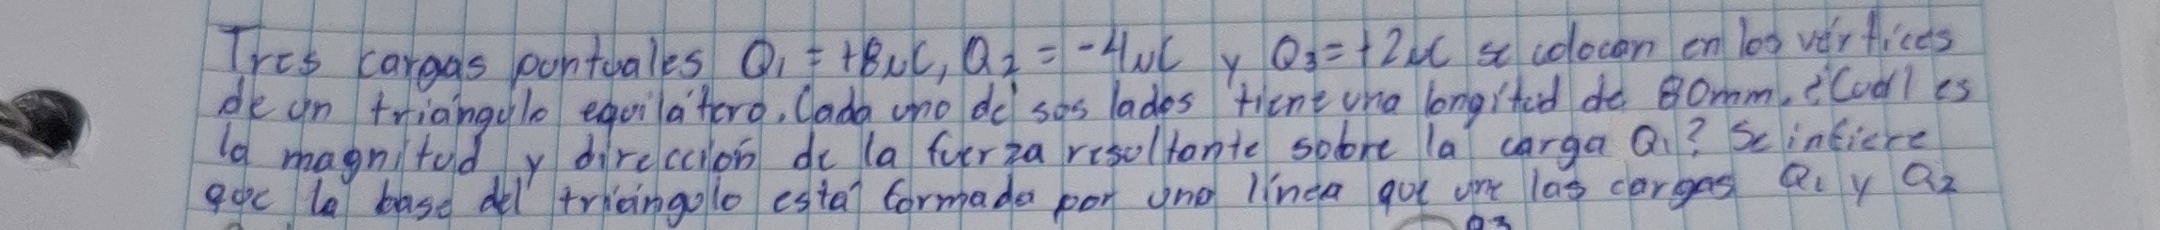 Tres cargas pontuales Q₁ = +8μC, Q₂ = -4μC y Q₃=+2μC se colocan en los vértices
de un triángulo equilátero. Cada uno de sos lados tiene una longitud de 80mm. ¿Cuál es
la magnitud y dirección de la fuerza resultante sobre la carga Q₁? Se infiere
que la base del triángulo está formada por una línea que une las cargas Q₁ y Q₂
Q3